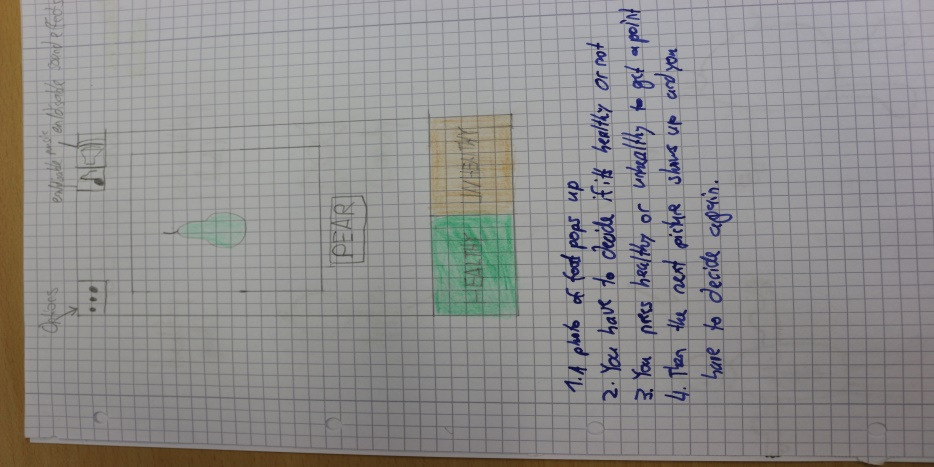 Options
enablable music / enablable sound effects
...
PEAR
HEALTHY UNHEALTHY
1. A photo of food pops up
2. You have to decide if it's healthy or not
3. You press healthy or unhealthy to get a point
4. Then the next picture shows up and you
have to decide again.